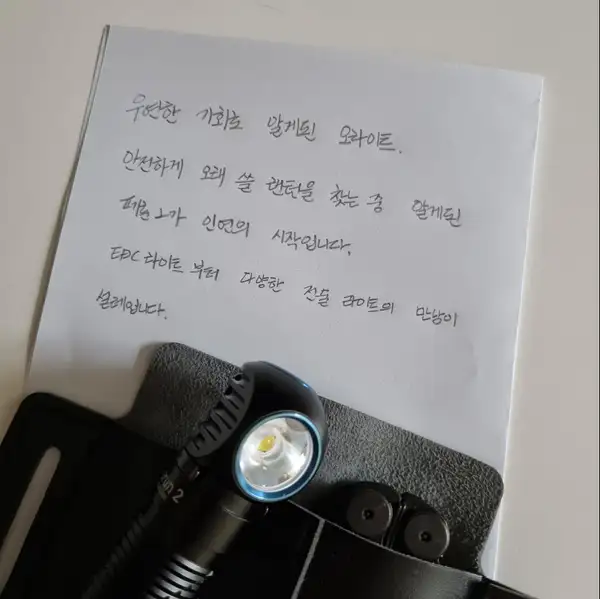 우연한 기회로 알게된 오라이트.
안전하게 오래 쓸 랜턴을 찾는 중 알게된
인연의 시작입니다.
EDC 라이트 부터 다양한 전술 라이트의 만남이
설레입니다.
2